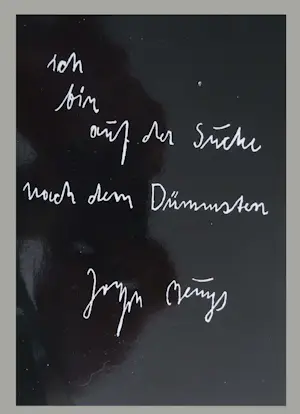 ich
bin
auf der Suche
nach dem Dümmsten
Joseph Beuys